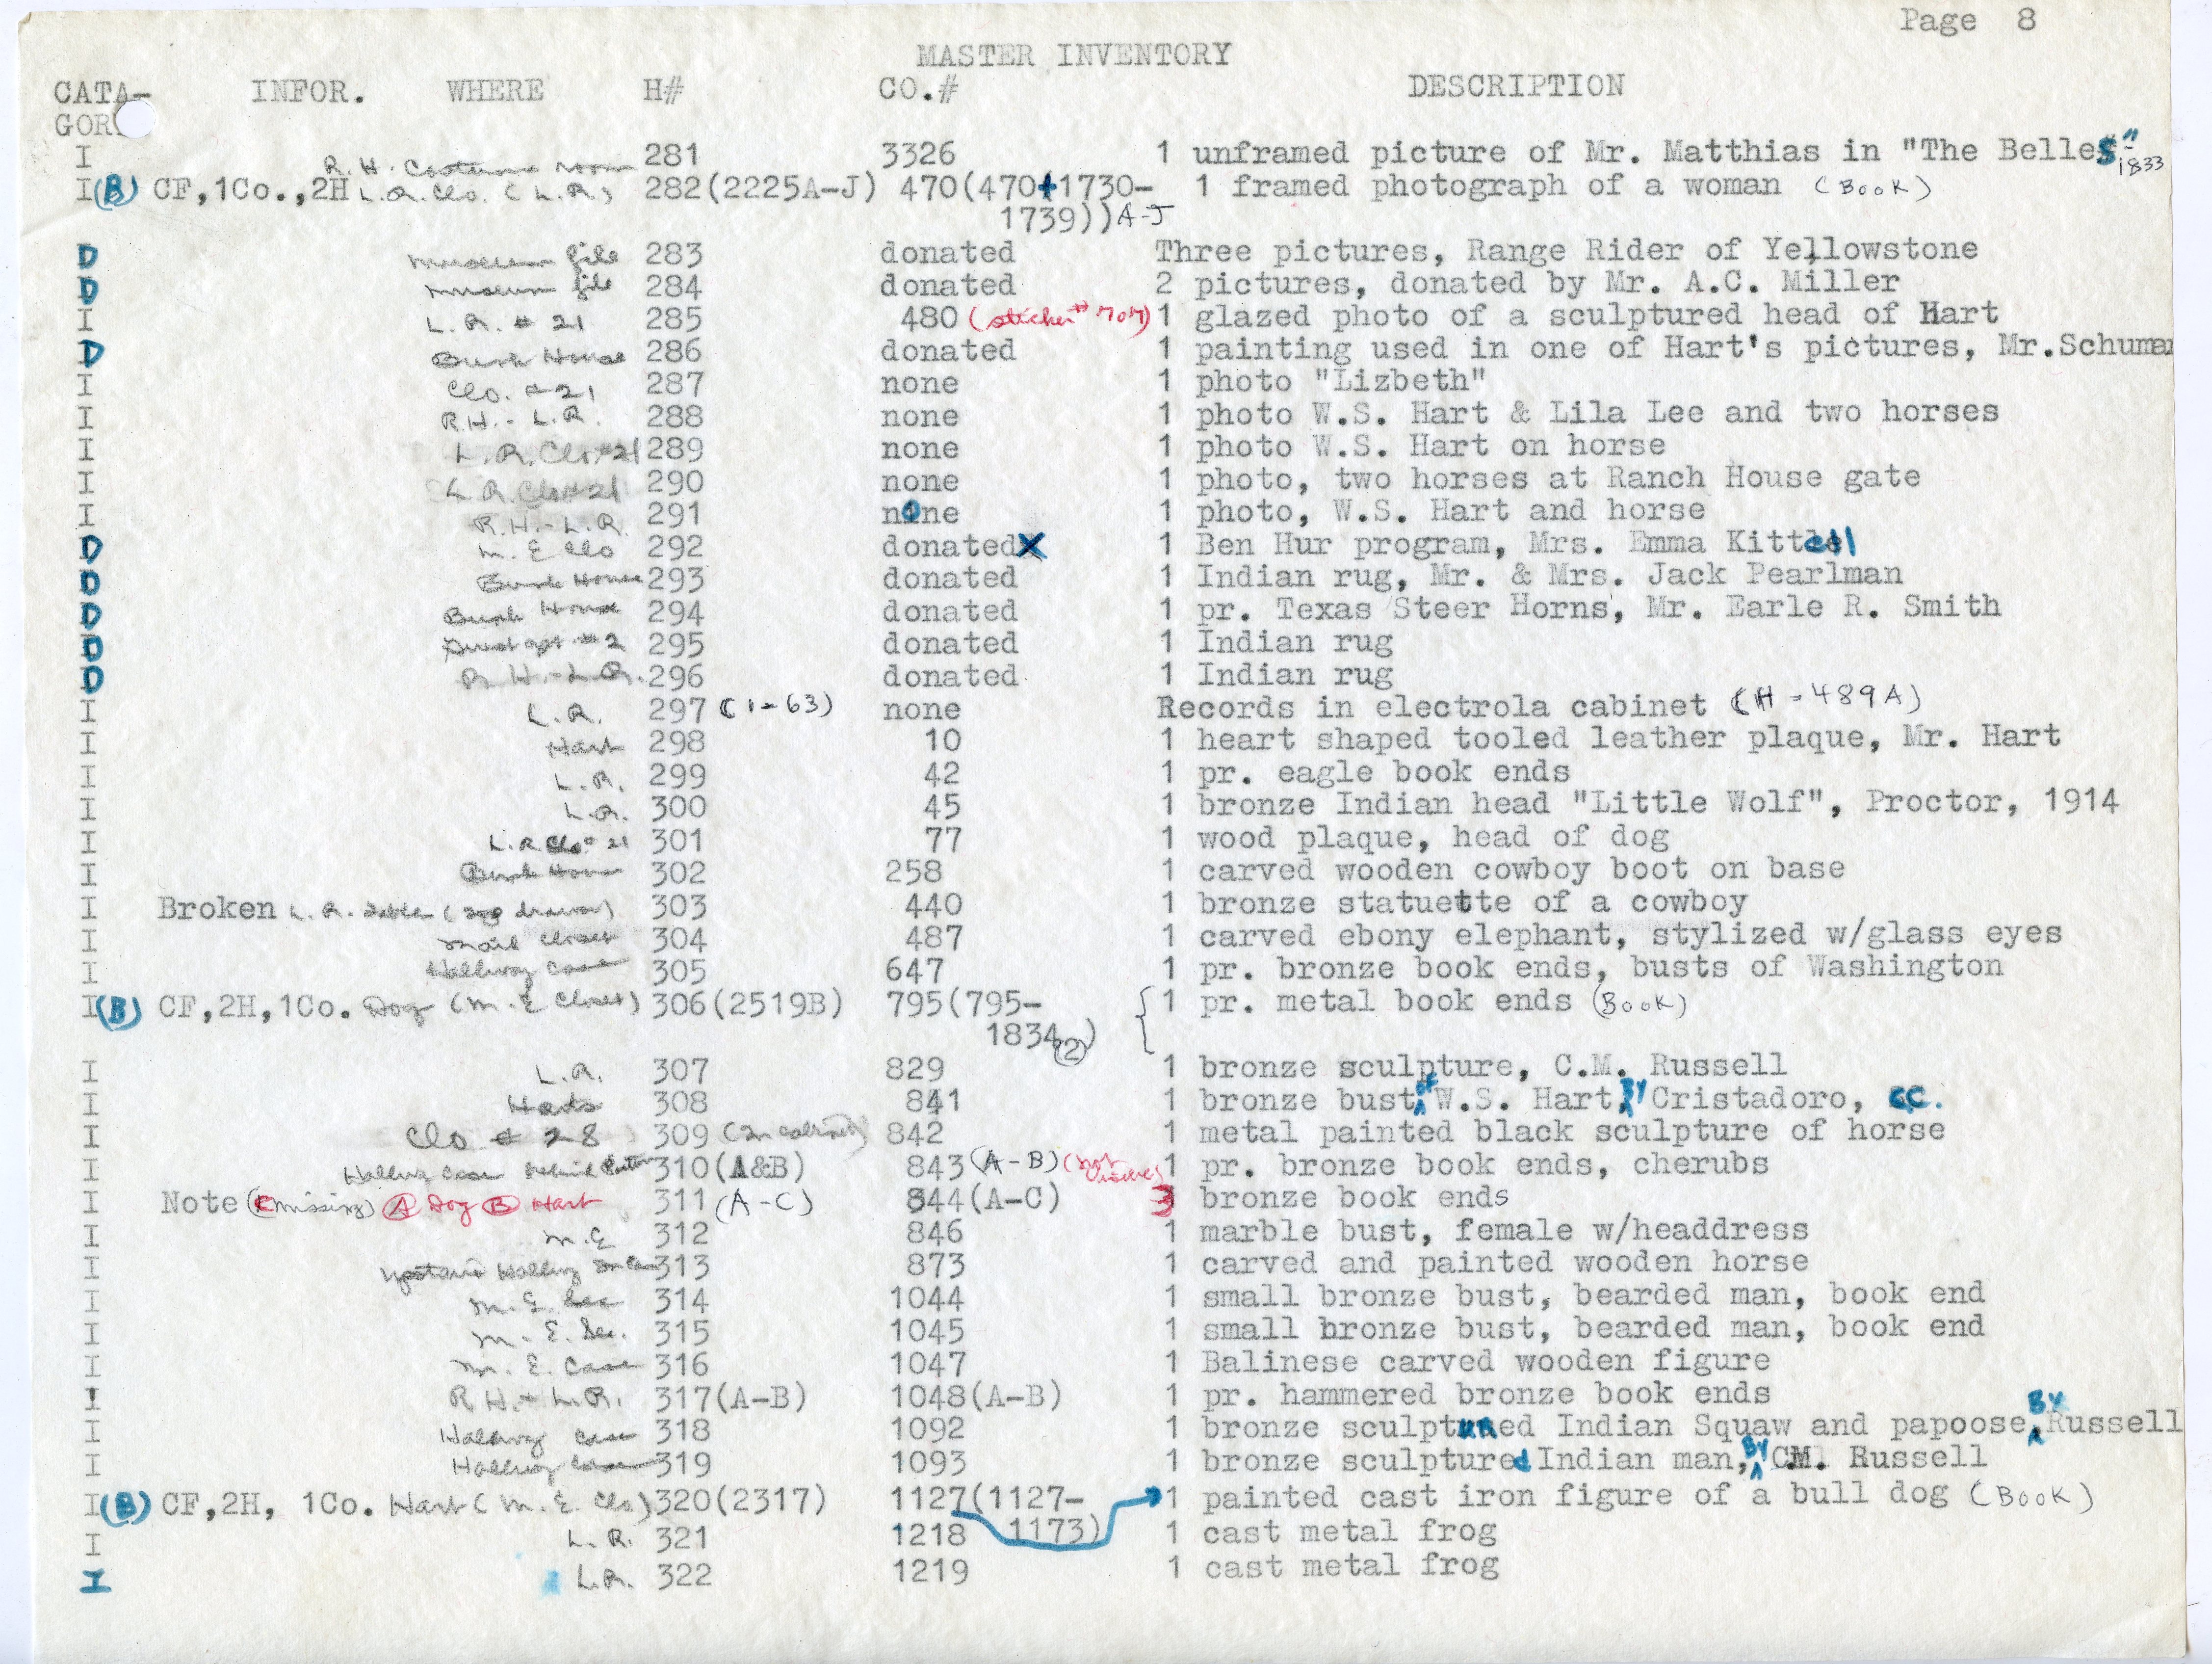 Page 8
MASTER INVENTORY
CATA- INFOR. WHERE H# CO.# DESCRIPTION
GOR
I R.H. Costume room 281 3326 1 unframed picture of Mr. Matthias in "The Belles" 1833
I(B) CF,1Co.,2H L.R. Clo. (L.R.) 282(2225A-J) 470(470+1730- 1 framed photograph of a woman (BOOK)
1739))A-J
D museum file 283 donated Three pictures, Range Rider of Yellowstone
D museum file 284 donated 2 pictures, donated by Mr. A.C. Miller
I L.R. # 21 285 480 (sticker # 707) 1 glazed photo of a sculptured head of Hart
D Bunk House 286 donated 1 painting used in one of Hart's pictures, Mr.Schuman
I Clo. # 21 287 none 1 photo "Lizbeth"
I R.H.- L.R. 288 none 1 photo W.S. Hart & Lila Lee and two horses
I L.R. Clo #21 289 none 1 photo W.S. Hart on horse
I L.R. Clo #21 290 none 1 photo, two horses at Ranch House gate
I R.H.- L.R. 291 none 1 photo, W.S. Hart and horse
D M.E Clo 292 donated X 1 Ben Hur program, Mrs. Emma Kittell
D Bunk House 293 donated 1 Indian rug, Mr. & Mrs. Jack Pearlman
D Bunk House 294 donated 1 pr. Texas Steer Horns, Mr. Earle R. Smith
D #2 295 donated 1 Indian rug
D R.H.-L.R. 296 donated 1 Indian rug
I L.R. 297 (1-63) none Records in electrola cabinet (H-489A)
I Hart 298 10 1 heart shaped tooled leather plaque, Mr. Hart
I L.R. 299 42 1 pr. eagle book ends
I L.R. 300 45 1 bronze Indian head "Little Wolf", Proctor, 1914
I L.R Clo # 21 301 77 1 wood plaque, head of dog
I Bunk House 302 258 1 carved wooden cowboy boot on base
I Broken L.R. table (top drawer) 303 440 1 bronze statuette of a cowboy
I closet 304 487 1 carved ebony elephant, stylized w/glass eyes
I Hallway case 305 647 1 pr. bronze book ends, busts of Washington
I(B) CF,2H,1Co. Dog (M.E Closet) 306(2519B) 795(795- 1 pr. metal book ends (BOOK)
1834(2))
I L.R. 307 829 1 bronze sculpture, C.M. Russell
I Harts 308 841 1 bronze bust of W.S. Hart, BY Cristadoro, CC.
I Clo # 28 309 (in cabinet) 842 1 metal painted black sculpture of horse
I Hallway case behind 310(A&B) 843(A-B) (not visible) 1 pr. bronze book ends, cherubs
I Note (C missing) A Dog B Hart 311 (A-C) 844(A-C) 3 bronze book ends
I M.E 312 846 1 marble bust, female w/headdress
I Upstairs Hallway 313 873 1 carved and painted wooden horse
I M.E. Sec 314 1044 1 small bronze bust, bearded man, book end
I M.E. Sec. 315 1045 1 small bronze bust, bearded man, book end
I M.E. Case 316 1047 1 Balinese carved wooden figure
I R.H.- L.R. 317(A-B) 1048(A-B) 1 pr. hammered bronze book ends
I Hallway case 318 1092 1 bronze sculptured Indian Squaw and papoose, BY Russell
I Hallway case 319 1093 1 bronze sculptured Indian man, BY C.M. Russell
I(B) CF,2H, 1Co. Hart (M.E. Clo) 320(2317) 1127(1127- 1 painted cast iron figure of a bull dog (BOOK)
1173)
I L.R. 321 1218 1 cast metal frog
I L.R. 322 1219 1 cast metal frog